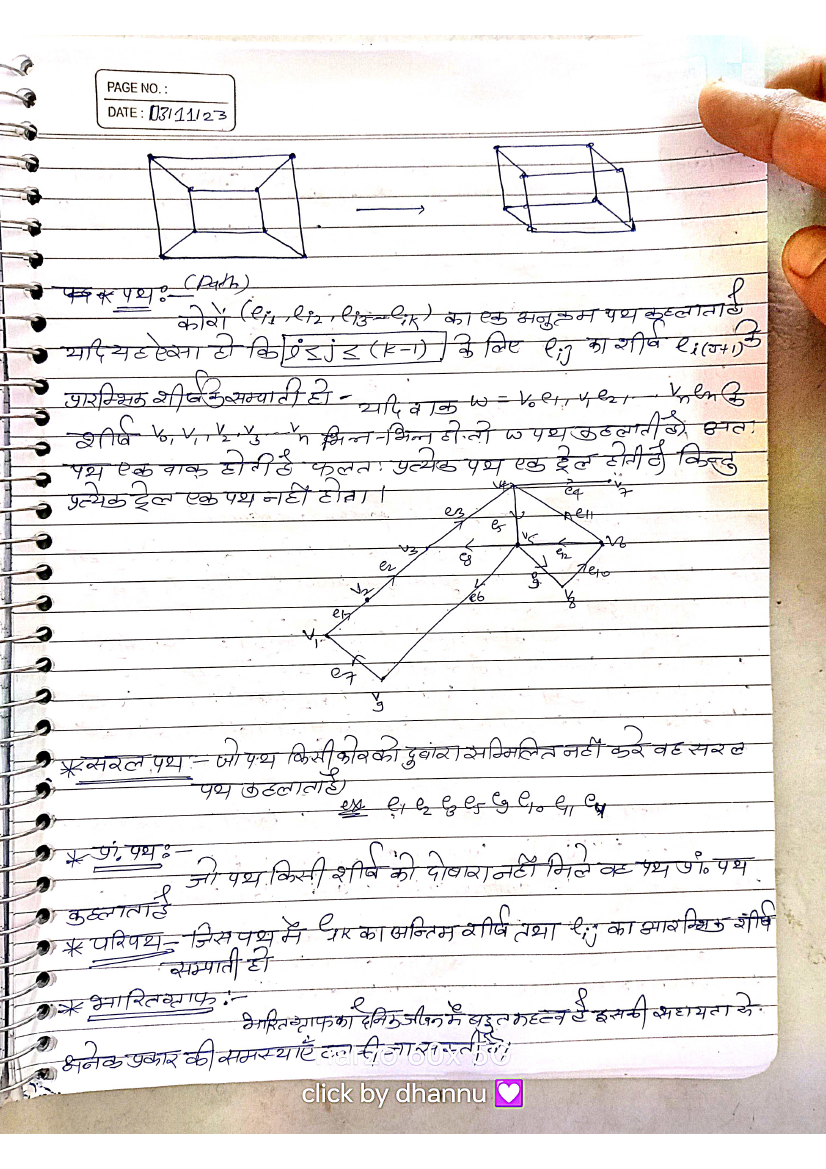 PAGE NO. :
DATE : 03/11/23
* पथ :- (Path)
कोरों (ei1, ei2, ei3---eik) का एक अनुक्रम पथ कहलाता है
यदि यह ऐसा हो कि 1≤j≤(k-1) के लिए eij का शीर्ष ei(j+1) के
प्रारम्भिक शीर्ष के सम्पाती हो - यदि वाक W = V0e1, V1e2, ... Vnen के
शीर्ष V0, V1, V2, V3 ... Vn भिन्न-भिन्न हो तो W पथ कहलाती है अतः
पथ एक वाक होती है फलतः प्रत्येक पथ एक ट्रेल होती है किन्तु
प्रत्येक ट्रेल एक पथ नहीं होता।
V4 e4 V7
e3 e5 e11
V3 e8 V5 e12 V6
e2 e9 e10
V2 e6 V8
e1
V1
e7
V9
* सरल पथ - जो पथ किसी कोर को दुवारा सम्मिलित नहीं करे वह सरल
पथ कहलाता है।
ex e1 e2 e3 e5 e9 e10 e11 e4
* प्रा. पथ :-
जो पथ किसी शीर्ष को दोबारा नहीं मिले वह पथ प्रा. पथ
कहलाता है
* परिपथ - जिस पथ में का अन्तिम शीर्ष तथा eij का आरम्भिक शीर्ष
सम्पाती हो
* भारित ग्राफ :-
भारित ग्राफ का दैनिक जीवन में बहुत महत्व है इसकी सहायता से
अनेक प्रकार की समस्याएँ हल की जा सकती है।
click by dhannu 💟